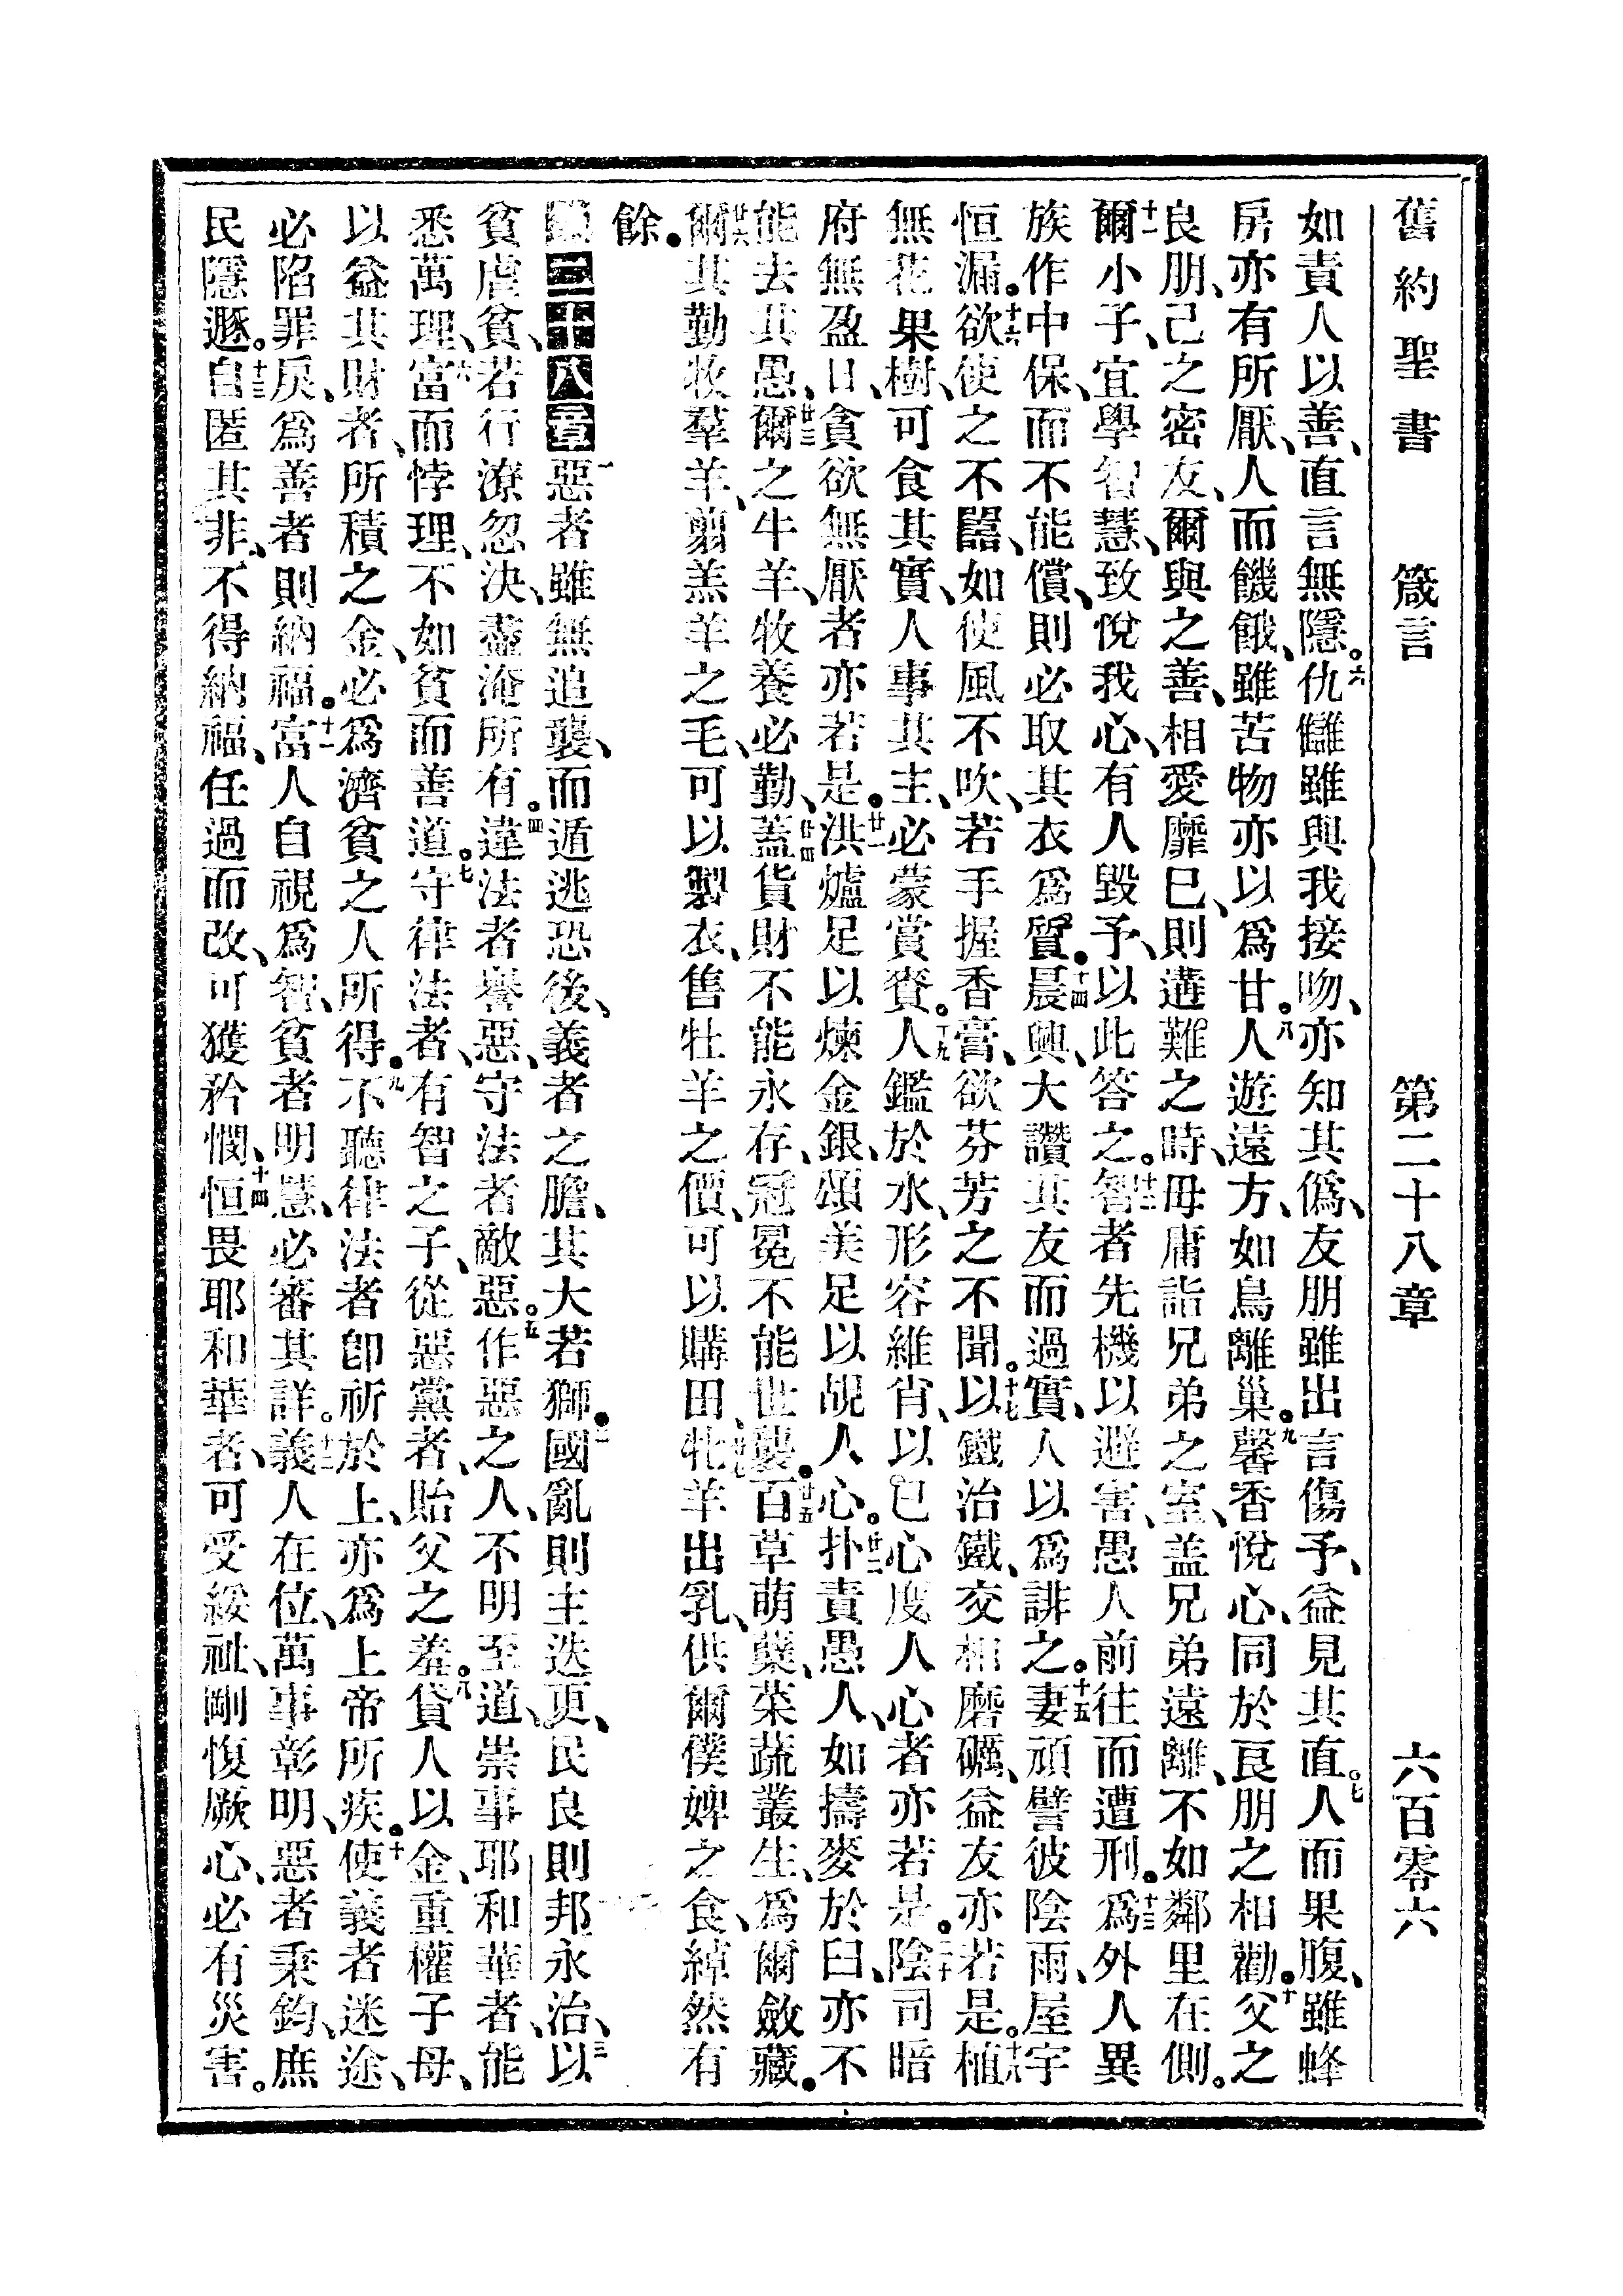 舊約聖書 箴言 第二十八章 六百零六
如責人以善、直言無隱。六仇讎雖與我接吻、亦知其僞、友朋雖出言傷予、益見其直。七人而果腹、雖蜂
房亦有所厭、人而饑餓、雖苦物亦以爲甘。八人遊遠方、如鳥離巢。九馨香悅心、同於良朋之相勸。十父之
良朋、己之密友、爾與之善、相愛靡已、則遘難之時、毋庸詣兄弟之室、盖兄弟遠離、不如鄰里在側。
十一爾小子、宜學智慧、致悅我心、有人毀予、以此答之。十二智者先機以避害、愚人前往而遭刑。十三爲外人異
族作中保、而不能償、則必取其衣爲質。十四晨興、大讚其友而過實、人以爲誹之。十五妻頑譬彼陰雨、屋宇
恒漏。十六欲使之不囂、如使風不吹、若手握香膏、欲芬芳之不聞。十七以鐵治鐵、交相磨礪、益友亦若是。十八植
無花果樹、可食其實、人事其主、必蒙賞賚。十九人鑑於水、形容維肖、以己心度人心者亦若是。二十陰司暗
府無盈日、貪欲無厭者亦若是。廿一洪爐足以煉金銀、頌美足以覘人心。廿二扑責愚人、如擣麥於臼、亦不
能去其愚、廿三爾之牛羊、牧養必勤、廿四蓋貨財不能永存、冠冕不能世襲。廿五百草萌蘖、菜蔬叢生、爲爾斂藏。
廿六爾其勤牧羣羊、剪羔羊之毛、可以製衣、售牡羊之價、可以購田、廿七牝羊出乳、供爾僕婢之食、綽然有
餘。
第二十八章 一惡者雖無追襲、而遁逃恐後、義者之膽、其大若獅。二國亂則主迭更、民良則邦永治、三以
貧虐貧、若行潦忽決、盡淹所有。四違法者譽惡、守法者敵惡。五作惡之人、不明至道、崇事耶和華者、能
悉萬理、六富而悖理、不如貧而善道。七守律法者、有智之子、從惡黨者、貽父之羞。八貸人以金、重權子母、
以益其財者、所積之金、必爲濟貧之人所得。九不聽律法者卽祈於上、亦爲上帝所疾。十使義者迷途、
必陷罪戾、爲善者則納福。十一富人自視爲智、貧者明慧、必審其詳。十二義人在位、萬事彰明、惡者秉鈞、庶
民隱遯。十三自匿其非、不得納福、任過而改、可獲矜憫、十四恒畏耶和華者、可受綏祉、剛愎厥心、必有災害。